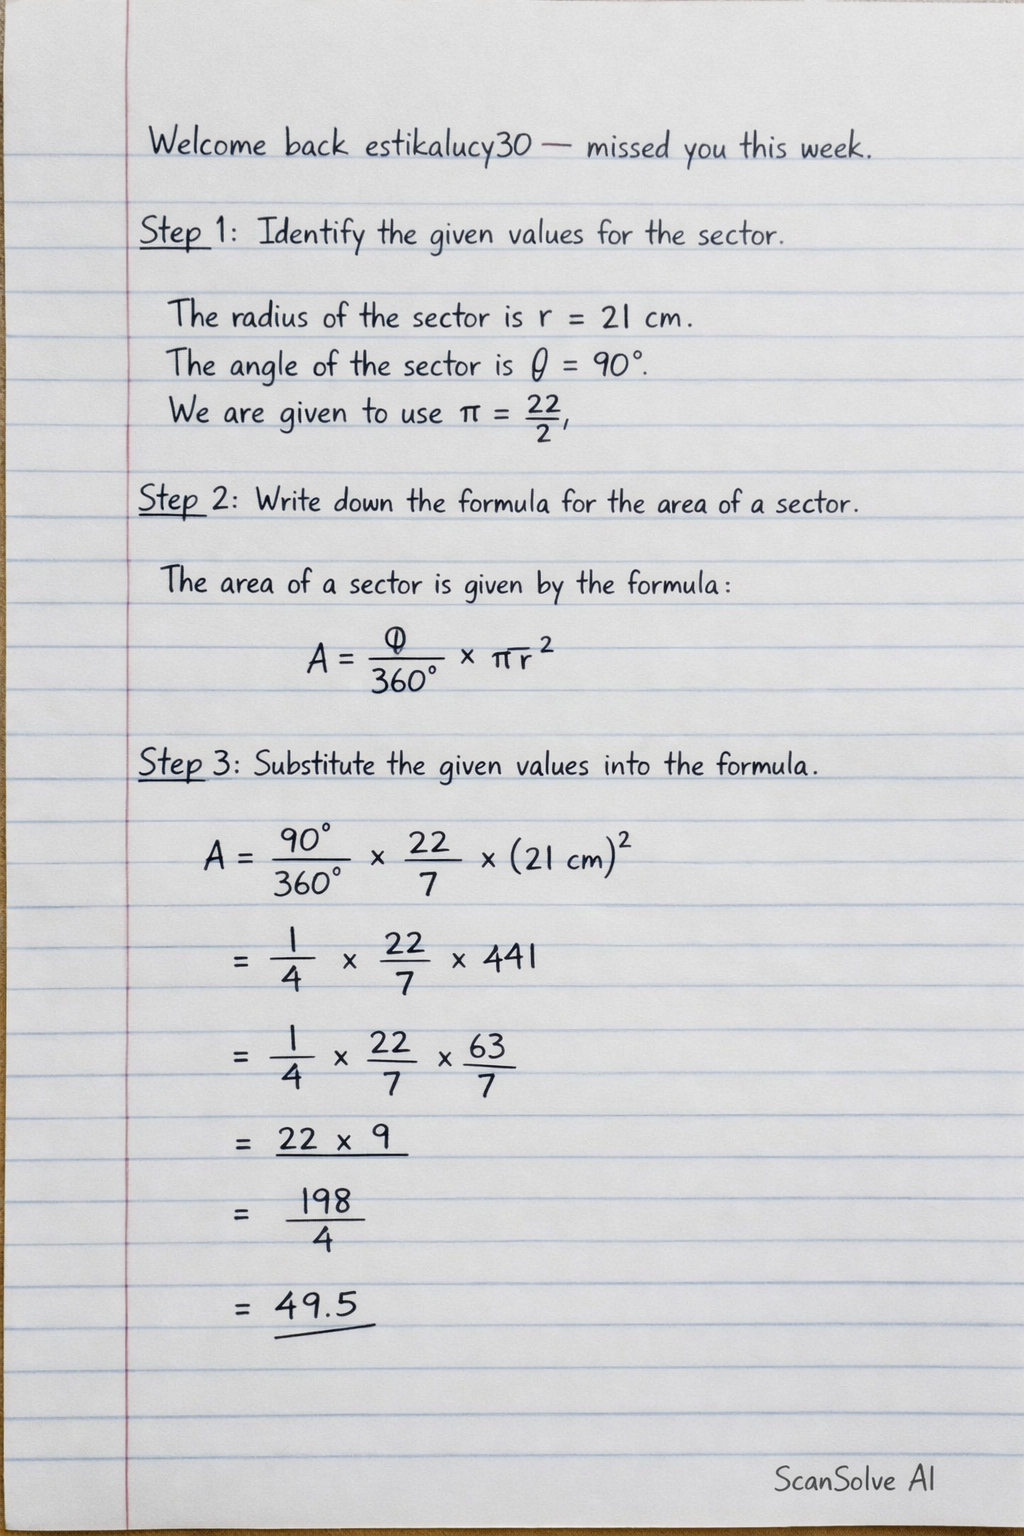 Welcome back estikalucy30 — missed you this week.
Step 1: Identify the given values for the sector.
The radius of the sector is r = 21 cm.
The angle of the sector is θ = 90°.
We are given to use π = 22/2,
Step 2: Write down the formula for the area of a sector.
The area of a sector is given by the formula:
A = θ/360° × πr²
Step 3: Substitute the given values into the formula.
A = 90°/360° × 22/7 × (21 cm)²
= 1/4 × 22/7 × 441
= 1/4 × 22/7 × 63/7
= 22 × 9
= 198/4
= 49.5
ScanSolve AI